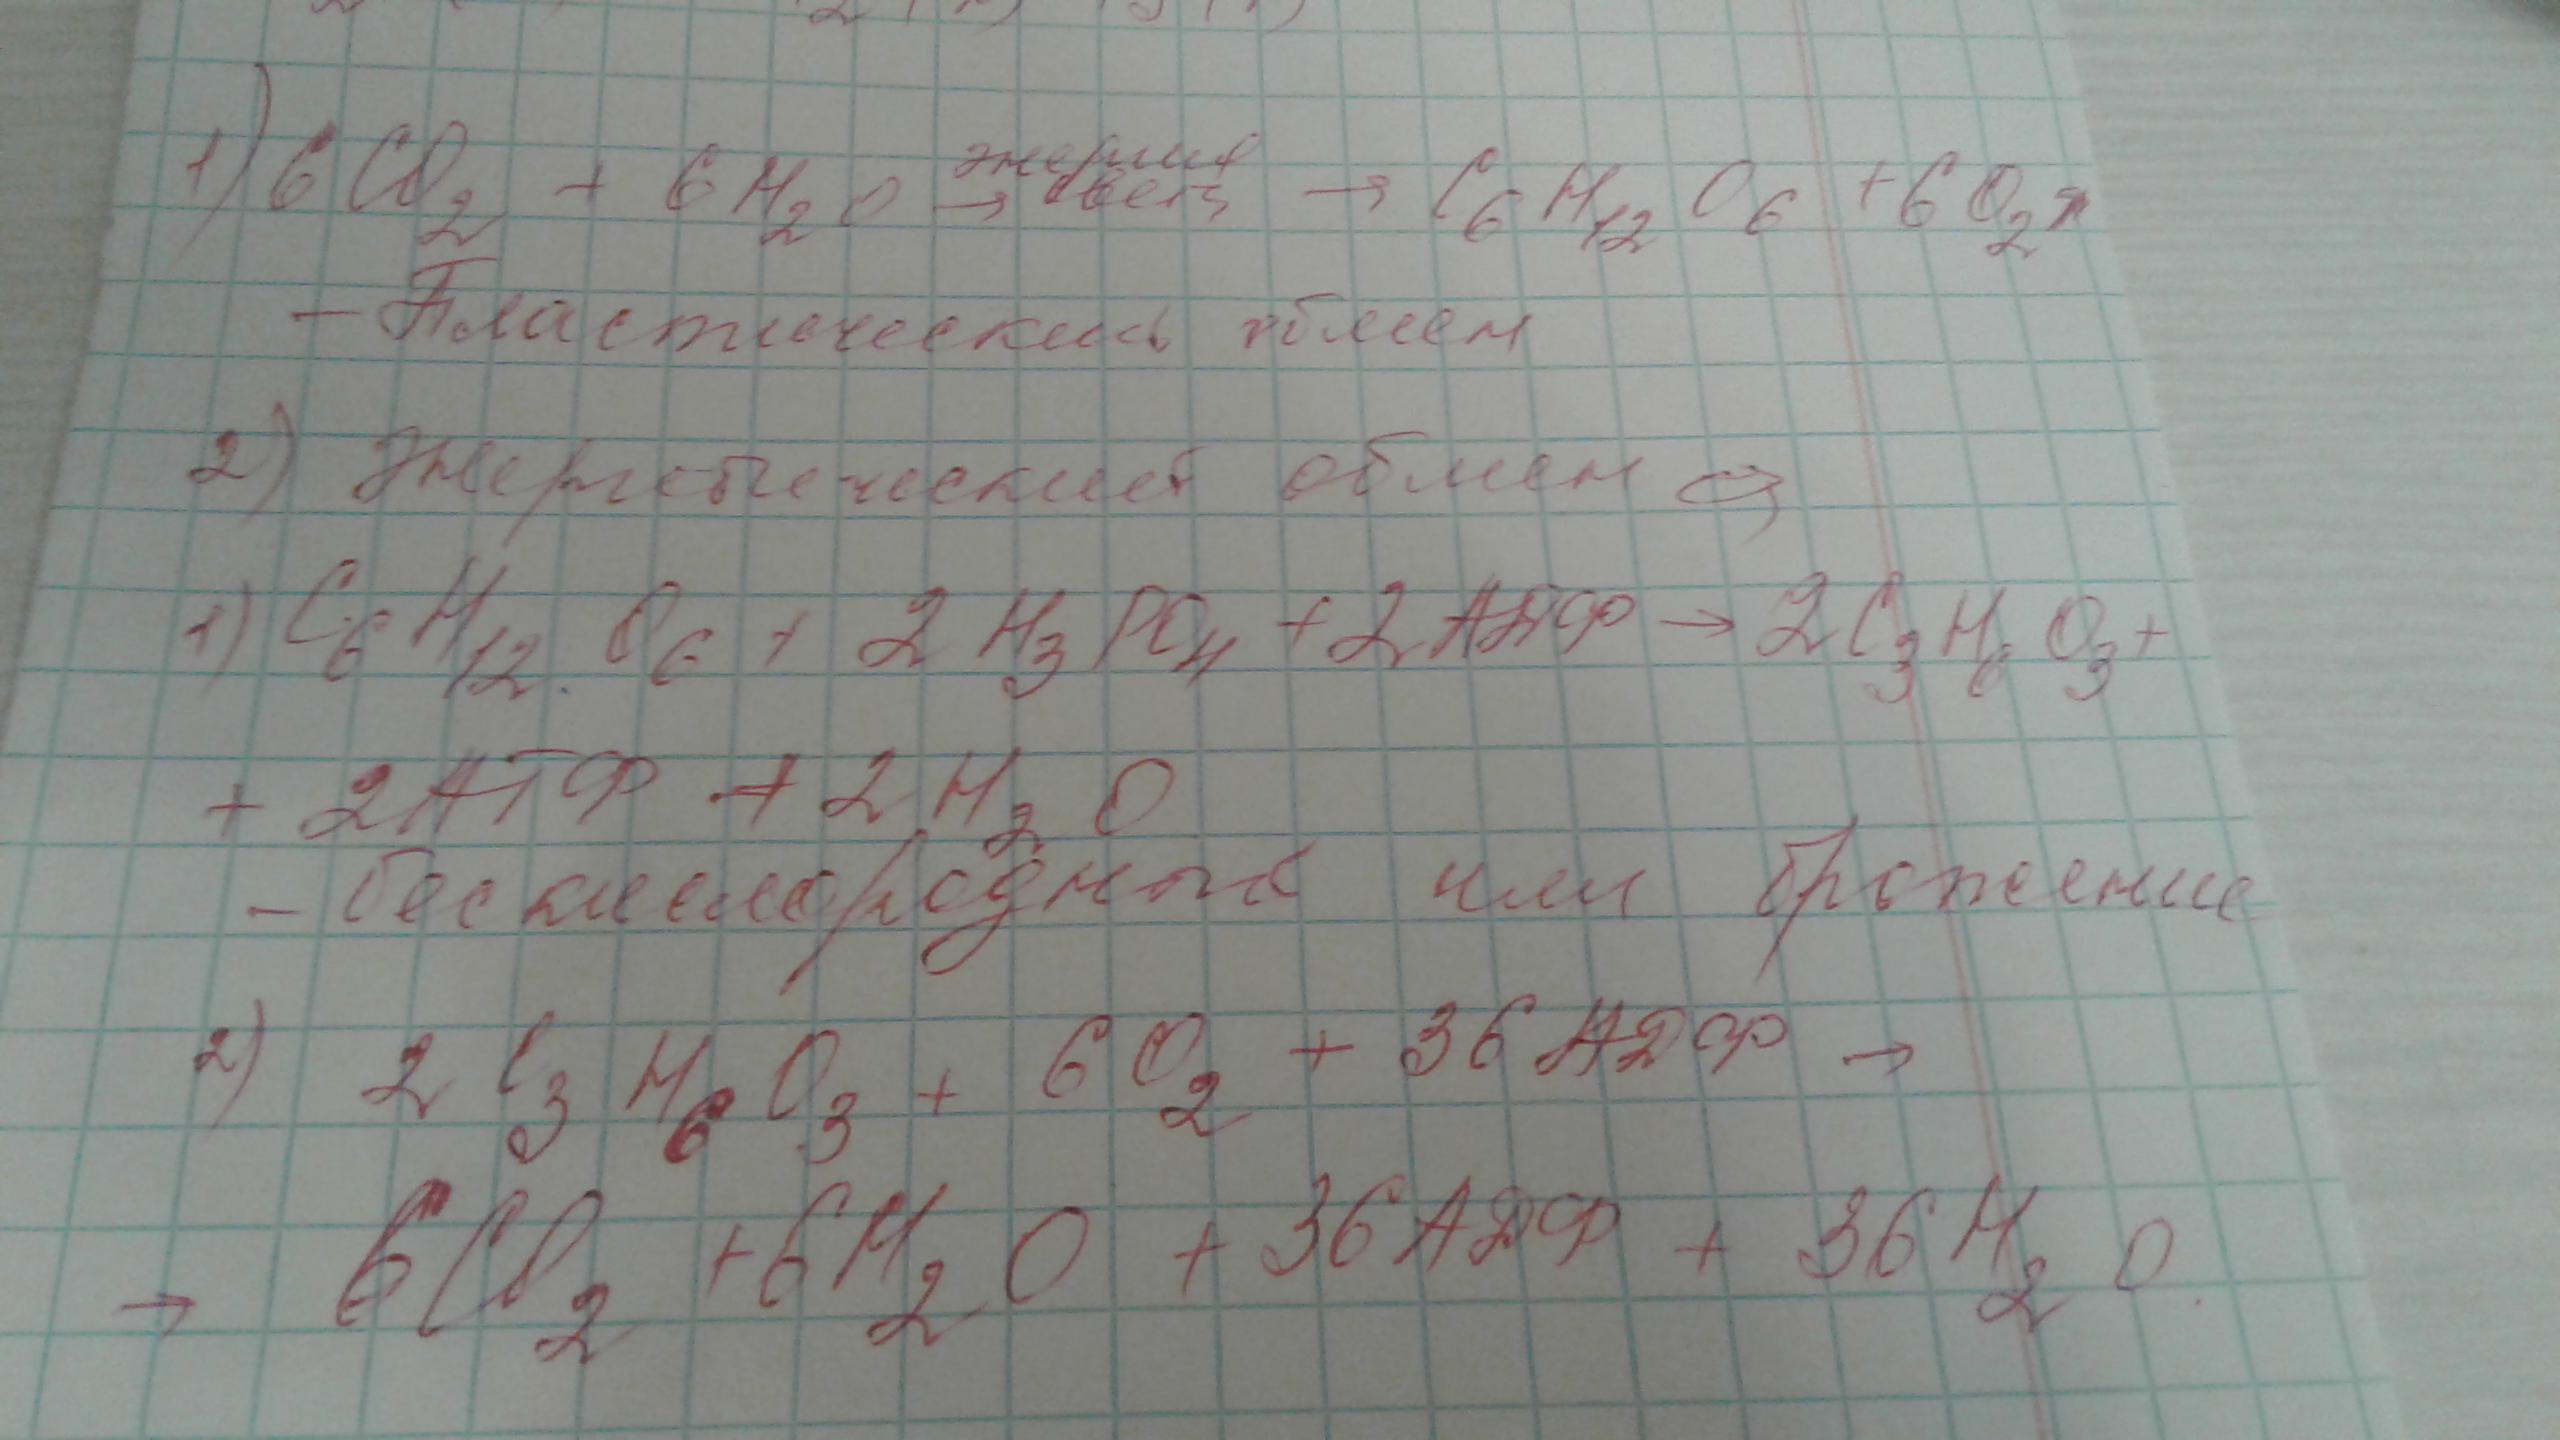 1) 6CO₂ + 6H₂O → энергия света → C₆H₁₂O₆ + 6O₂
- Пластический обмен
2) Энергетический обмен
1) C₆H₁₂O₆ + 2H₃PO₄ + 2АДФ → 2C₃H₆O₃ +
+ 2АТФ + 2H₂O
- бескислородный или брожение
2) 2C₃H₆O₃ + 6O₂ + 36АДФ →
→ 6CO₂ + 6H₂O + 36АДФ + 36H₂O.